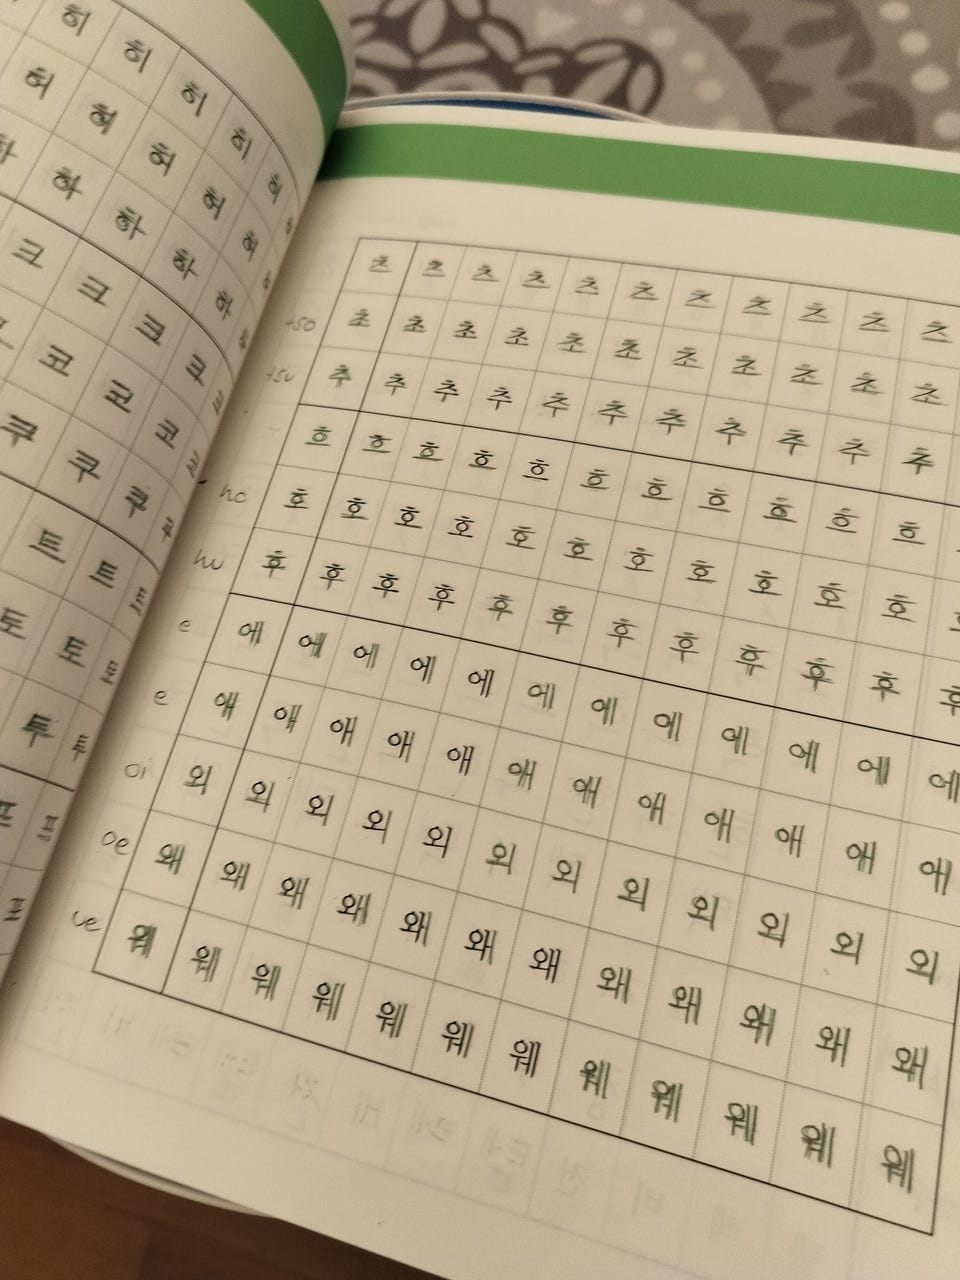 히 히 히 히 히
허 허 허 허 허
하 하 하 하
크 크 크 크
코 코 코
쿠 쿠 쿠 쿠
트 트 트
토 토 토
투 투
프 프
츠 츠 츠 츠 츠 츠 츠 츠 츠 츠 츠
초 초 초 초 초 초 초 초 초 초 초
추 추 추 추 추 추 추 추 추 추 추
흐 흐 흐 흐 흐 흐 흐 흐 흐 흐 흐
호 호 호 호 호 호 호 호 호 호 호
hu 후 후 후 후 후 후 후 후 후 후 후 후
e 에 에 에 에 에 에 에 에 에 에 에 에
e 애 애 애 애 애 애 애 애 애 애 애 애
oi 외 외 외 외 외 외 외 외 외 외 외 외
oe 왜 왜 왜 왜 왜 왜 왜 왜 왜 왜 왜 왜
ue 웨 웨 웨 웨 웨 웨 웨 웨 웨 웨 웨 웨